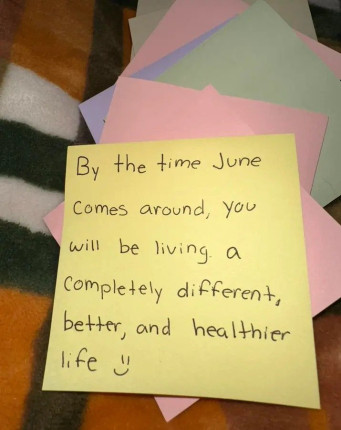 By the time June
comes around, you
will be living a
completely different,
better, and healthier
life :)